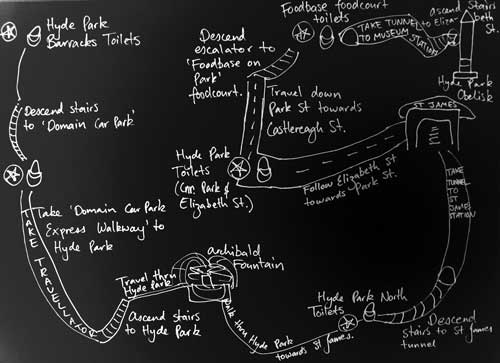 Hyde Park
Barracks Toilets
Descend stairs
to 'Domain Car Park'
Take 'Domain Car Park
Express Walkway' to
Hyde Park
TAKE TRAVELLATOR
Travel thru
Hyde Park
Ascend stairs
to Hyde Park
Archibald
Fountain
thru Hyde Park
towards St James.
Hyde Park North
Toilets
Descend
stairs to St James
tunnel
TAKE
TUNNEL
TO
ST
JAMES
STATION
ST JAMES
Follow Elizabeth St
towards Park St.
Hyde Park
Toilets
(Cnr. Park &
Elizabeth St.)
Travel down
Park St towards
Castlereagh
St.
Descend
escalator to
'Foodbase on
Park'
foodcourt.
Foodbase foodcourt
toilets
TAKE TUNNEL
TO MUSEUM
STATION
ascend Stairs
to Elizabeth St.
Hyde Park
Obelisk